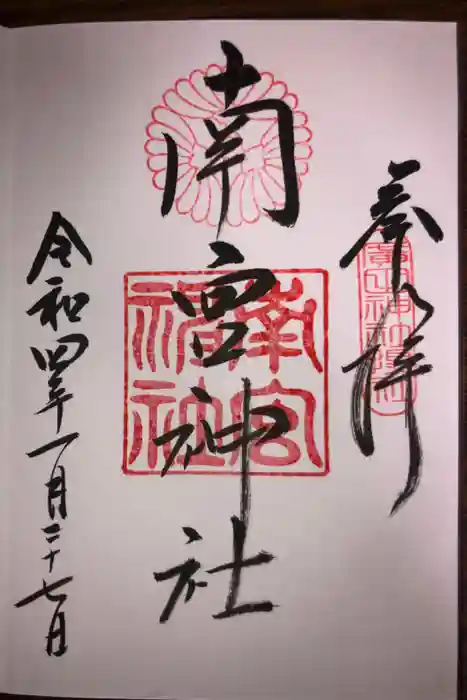 奉拝
南宮神社
南宮神社
令和四年一月二十七日